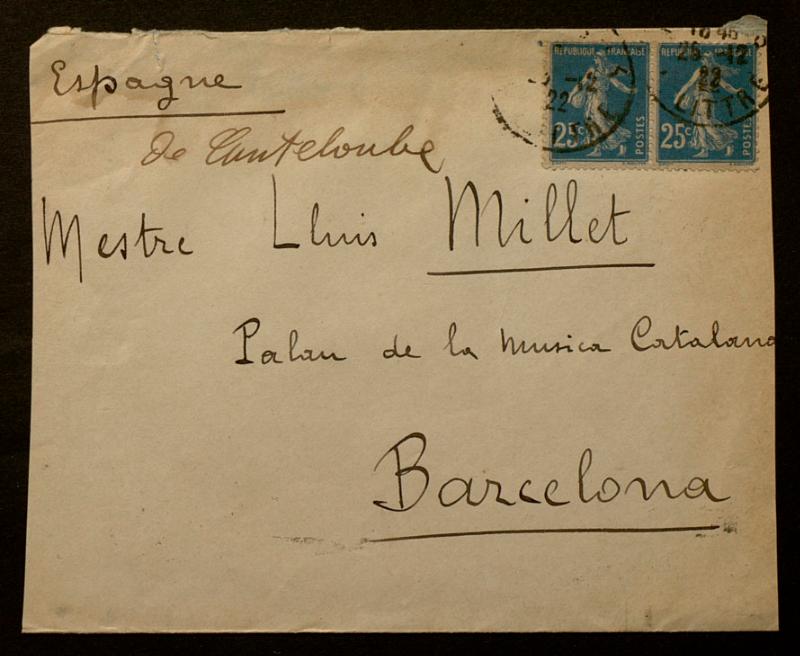 Espagne
de Canteloube
Mestre Lluis Millet
Palau de la Musica Catalana
Barcelona
REPUBLIQUE FRANÇAISE
25c POSTES
22
REPUBLIQUE FRANÇAISE
25c POSTES
18 45
12
22
LITTRE